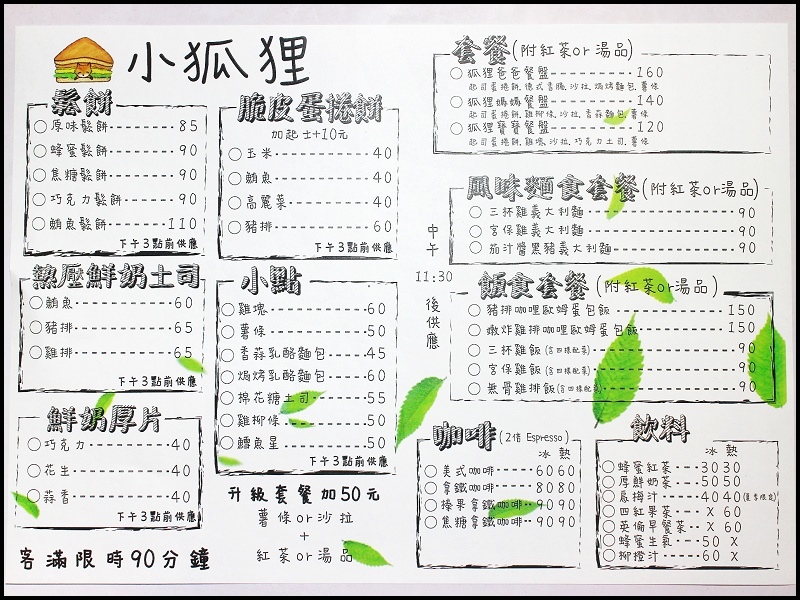 小狐狸
鬆餅
原味鬆餅 85
蜂蜜鬆餅 90
焦糖鬆餅 90
巧克力鬆餅 90
鮪魚鬆餅 110
下午3點前供應
脆皮蛋捲餅
加起士+10元
玉米 40
鮪魚 40
高麗菜 40
豬排 60
下午3點前供應
熱壓鮮奶土司
鮪魚 60
豬排 65
雞排 65
下午3點前供應
小點
雞塊 60
薯條 50
香蒜乳酪麵包 45
焗烤乳酪麵包 60
棉花糖土司 55
雞柳條 50
鱈魚星 50
下午3點前供應
鮮奶厚片
巧克力 40
花生 40
蒜香 40
下午3點前供應
升級套餐加50元
薯條or沙拉
+
紅茶or湯品
客滿限時90分鐘
套餐(附紅茶or湯品)
狐狸爸爸餐盤 160
起司蛋捲餅.德式香腸.沙拉.焗烤麵包.薯條
狐狸媽媽餐盤 140
起司蛋捲餅.雞柳條.沙拉.香蒜麵包.薯條
狐狸寶寶餐盤 120
起司蛋捲餅.雞塊.沙拉.巧克力土司.薯條
中午11:30後供應
風味麵食套餐(附紅茶or湯品)
三杯雞義大利麵 90
宮保雞義大利麵 90
茄汁醬黑豬義大利麵 90
飯食套餐(附紅茶or湯品)
豬排咖哩歐姆蛋包飯 150
嫩炸雞排咖哩歐姆蛋包飯 150
三杯雞飯(含四樣配菜) 90
宮保雞飯(含四樣配菜) 90
無骨雞排飯(含四樣配菜) 90
咖啡(2倍 Espresso)
冰 熱
美式咖啡 60 60
拿鐵咖啡 80 80
榛果拿鐵咖啡 90 90
焦糖拿鐵咖啡 90 90
飲料
冰 熱
蜂蜜紅茶 30 30
厚鮮奶茶 50 50
烏梅汁 40 40(夏季限定)
四紅果茶 X 60
英倫早餐茶 X 60
蜂蜜生氣 50 X
柳橙汁 60 X